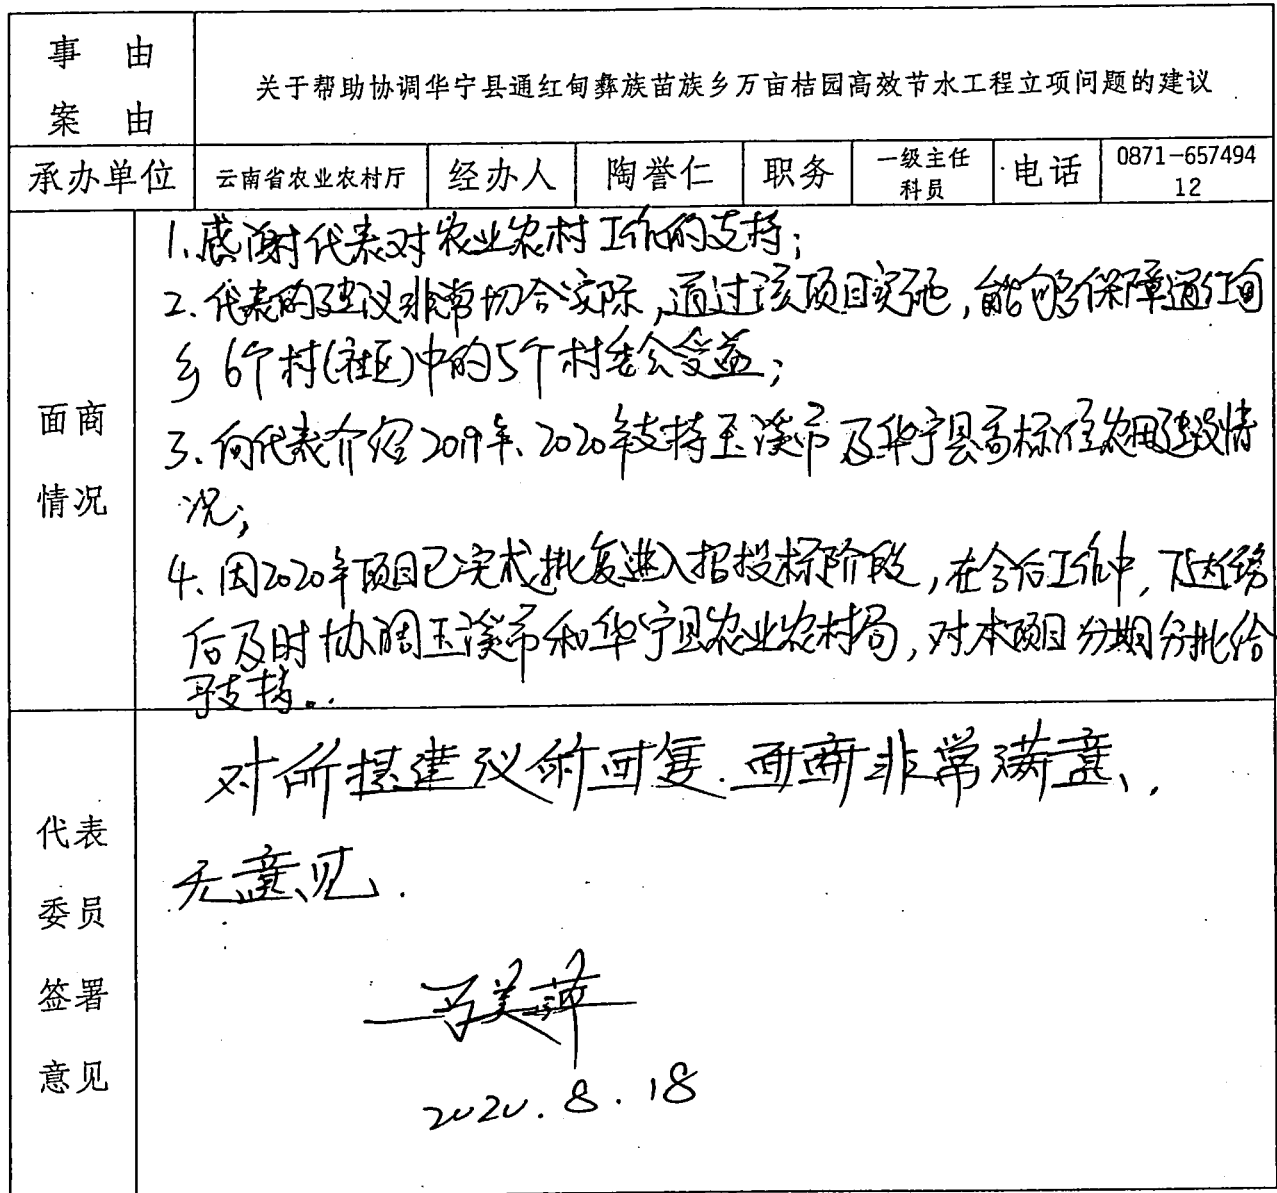 事 由
案 由
关于帮助协调华宁县通红甸彝族苗族乡万亩桔园高效节水工程立项问题的建议
承办单位
云南省农业农村厅
经办人
陶誉仁
职务
一级主任
科员
电话
0871-657494
12
面商
情况
1.感谢代表对农业农村工作的支持;
2.代表的建议非常切合实际,通过该项目实施,能够保障通红甸
乡6个村(社区)中的5个村委会受益;
3、向代表介绍2019年、2020年支持玉溪市及华宁县高标准农田建设情
况;
4、因2020年项目已完成批复进入招投标阶段,在今后工作中,下达任务
后及时协调玉溪市和华宁县农业农村局,对本项目分期分批给
予支持。
代表
委员
签署
意见
对所提建议的回复.面商非常满意、
无意见.
马美萍
2020.8.18